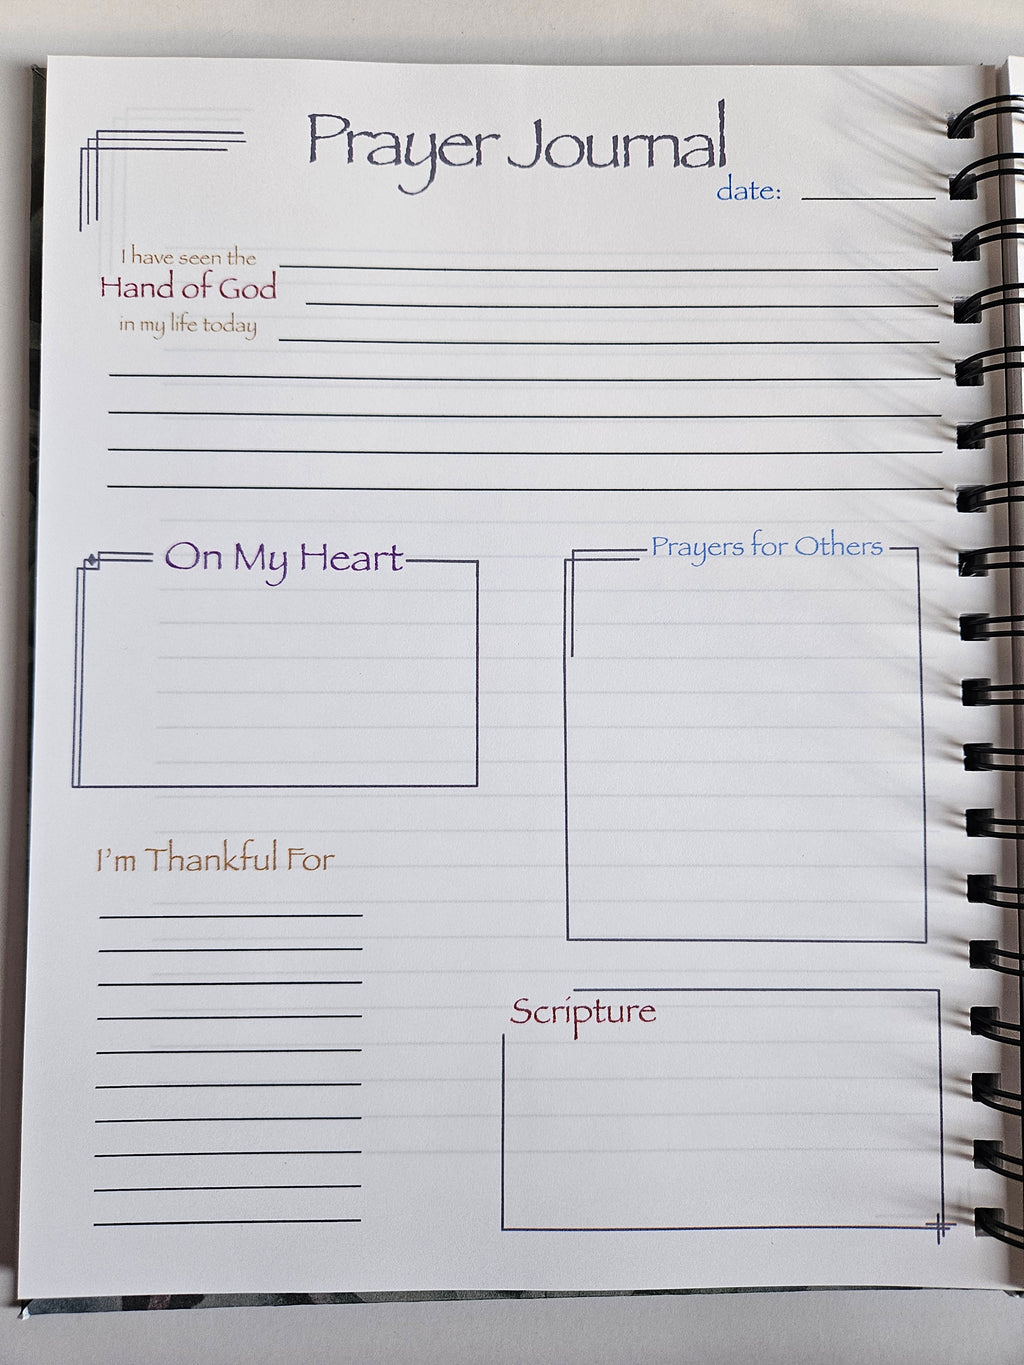 Prayer Journal
date:
I have seen the
Hand of God
in my life today
On My Heart
Prayers for Others
I'm Thankful For
Scripture